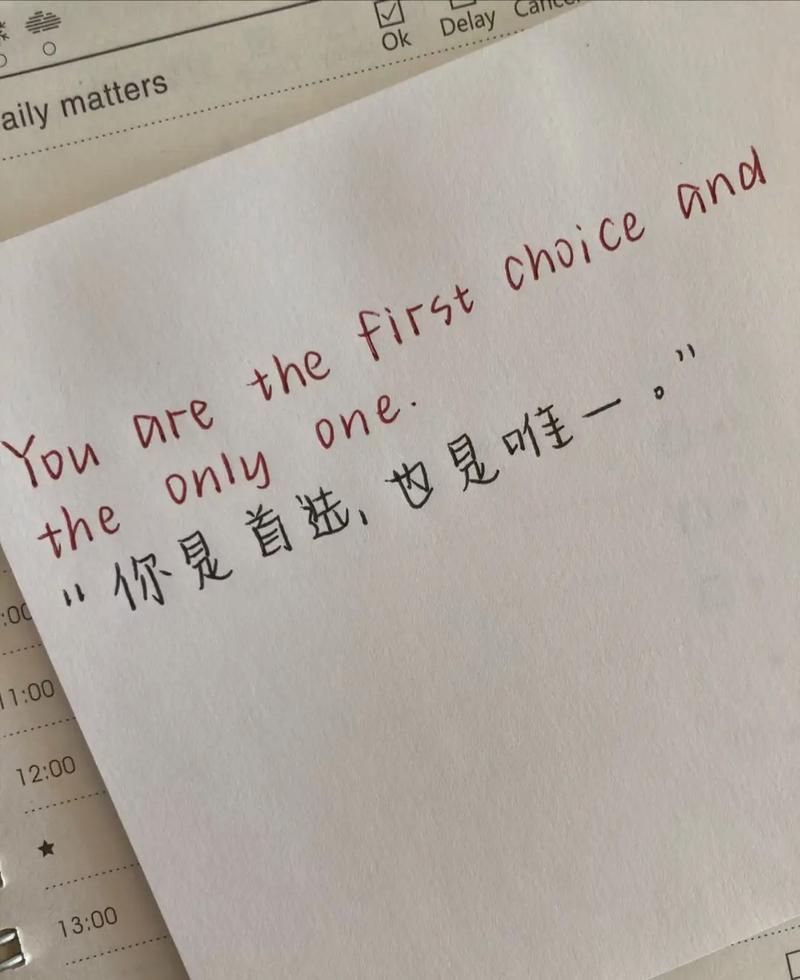 Ok
Delay
aily matters
You are the first choice and
the only one.
“你是首选,也是唯一。”
:00
11:00
12:00
13:00